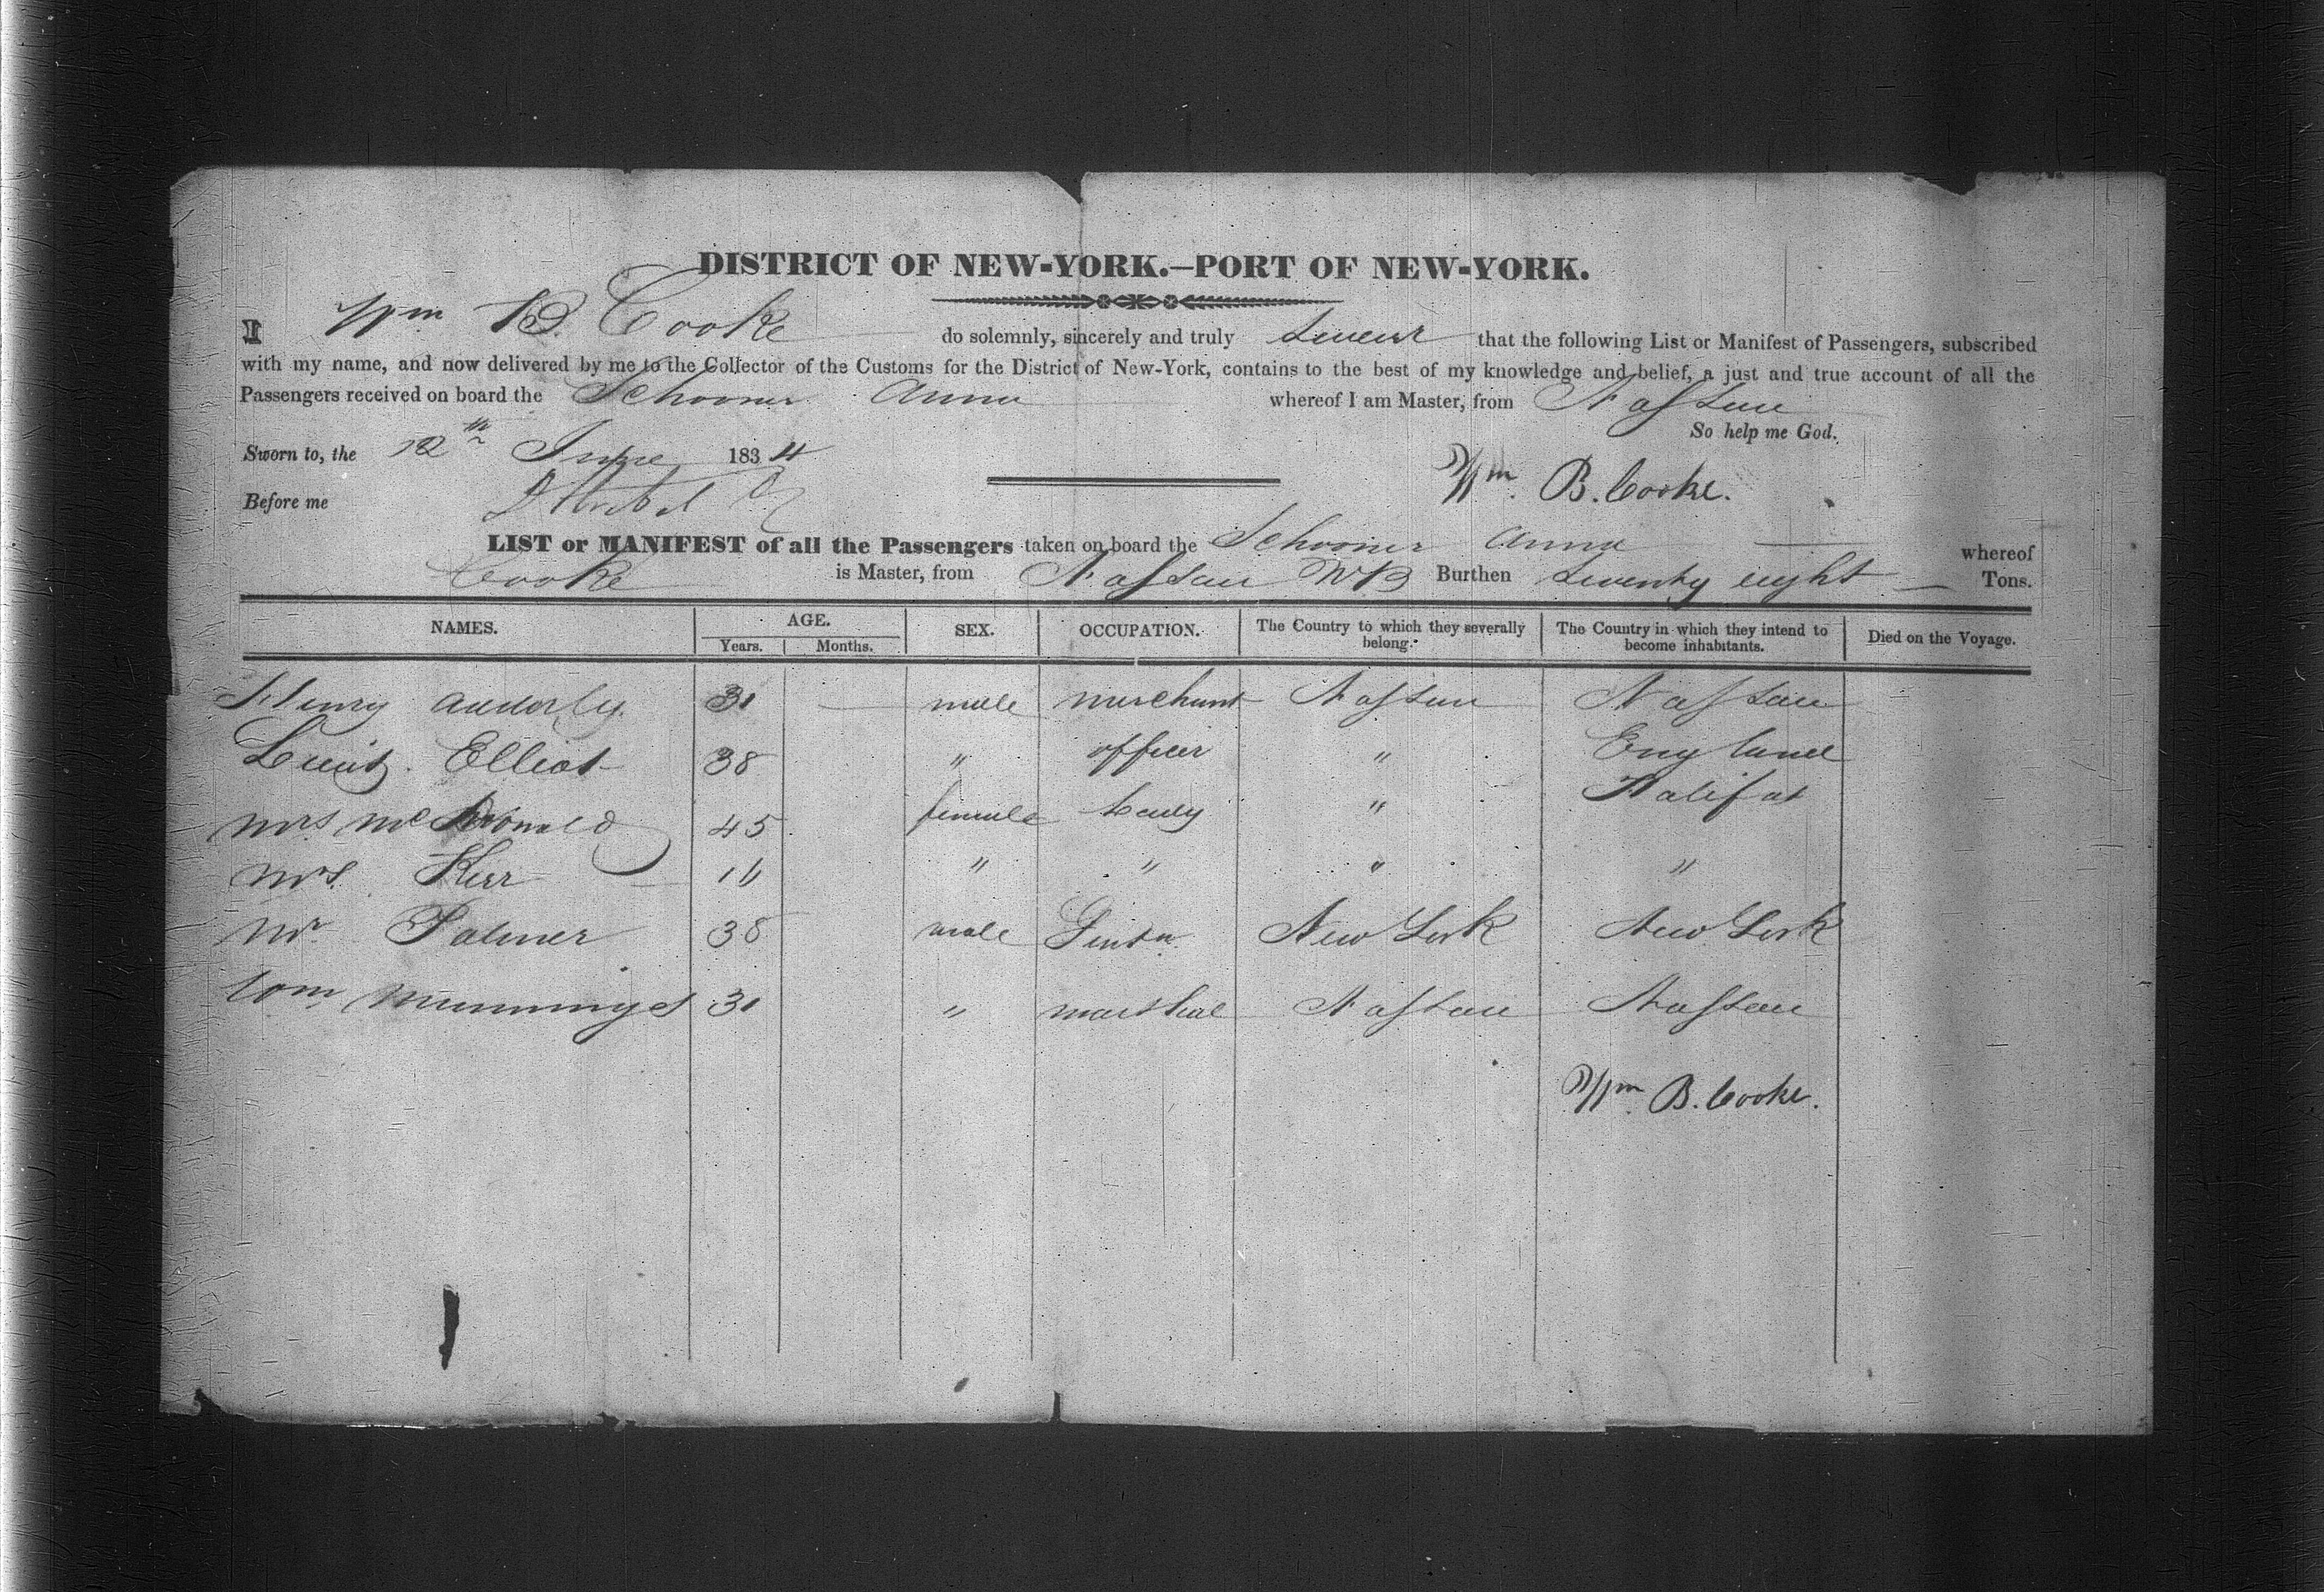 DISTRICT OF NEW-YORK.—PORT OF NEW-YORK.
I Wm B. Cooke do solemnly, sincerely and truly swear that the following List or Manifest of Passengers, subscribed
with my name, and now delivered by me to the Collector of the Customs for the District of New-York, contains to the best of my knowledge and belief, a just and true account of all the
Passengers received on board the Schooner Anna whereof I am Master, from Nassau
So help me God.
Sworn to, the 12th June 1834
Wm B. Cooke.
Before me
LIST or MANIFEST of all the Passengers taken on board the Schooner Anna whereof
Cooke is Master, from Nassau NB Burthen seventy eight Tons.
NAMES. AGE. SEX. OCCUPATION. The Country to which they severally belong. The Country in which they intend to become inhabitants. Died on the Voyage.
Years. Months.
Henry 31 — male merchant Nassau Nassau
Lieut. Elliot 38 " officer " England
Mrs McDonald 45 female Lady " Halifax
Mrs. Kerr 16 " " " "
Mr Palmer 38 male Gentn New York New York
Wm 31 " marshal Nassau Nassau
Wm B. Cooke.